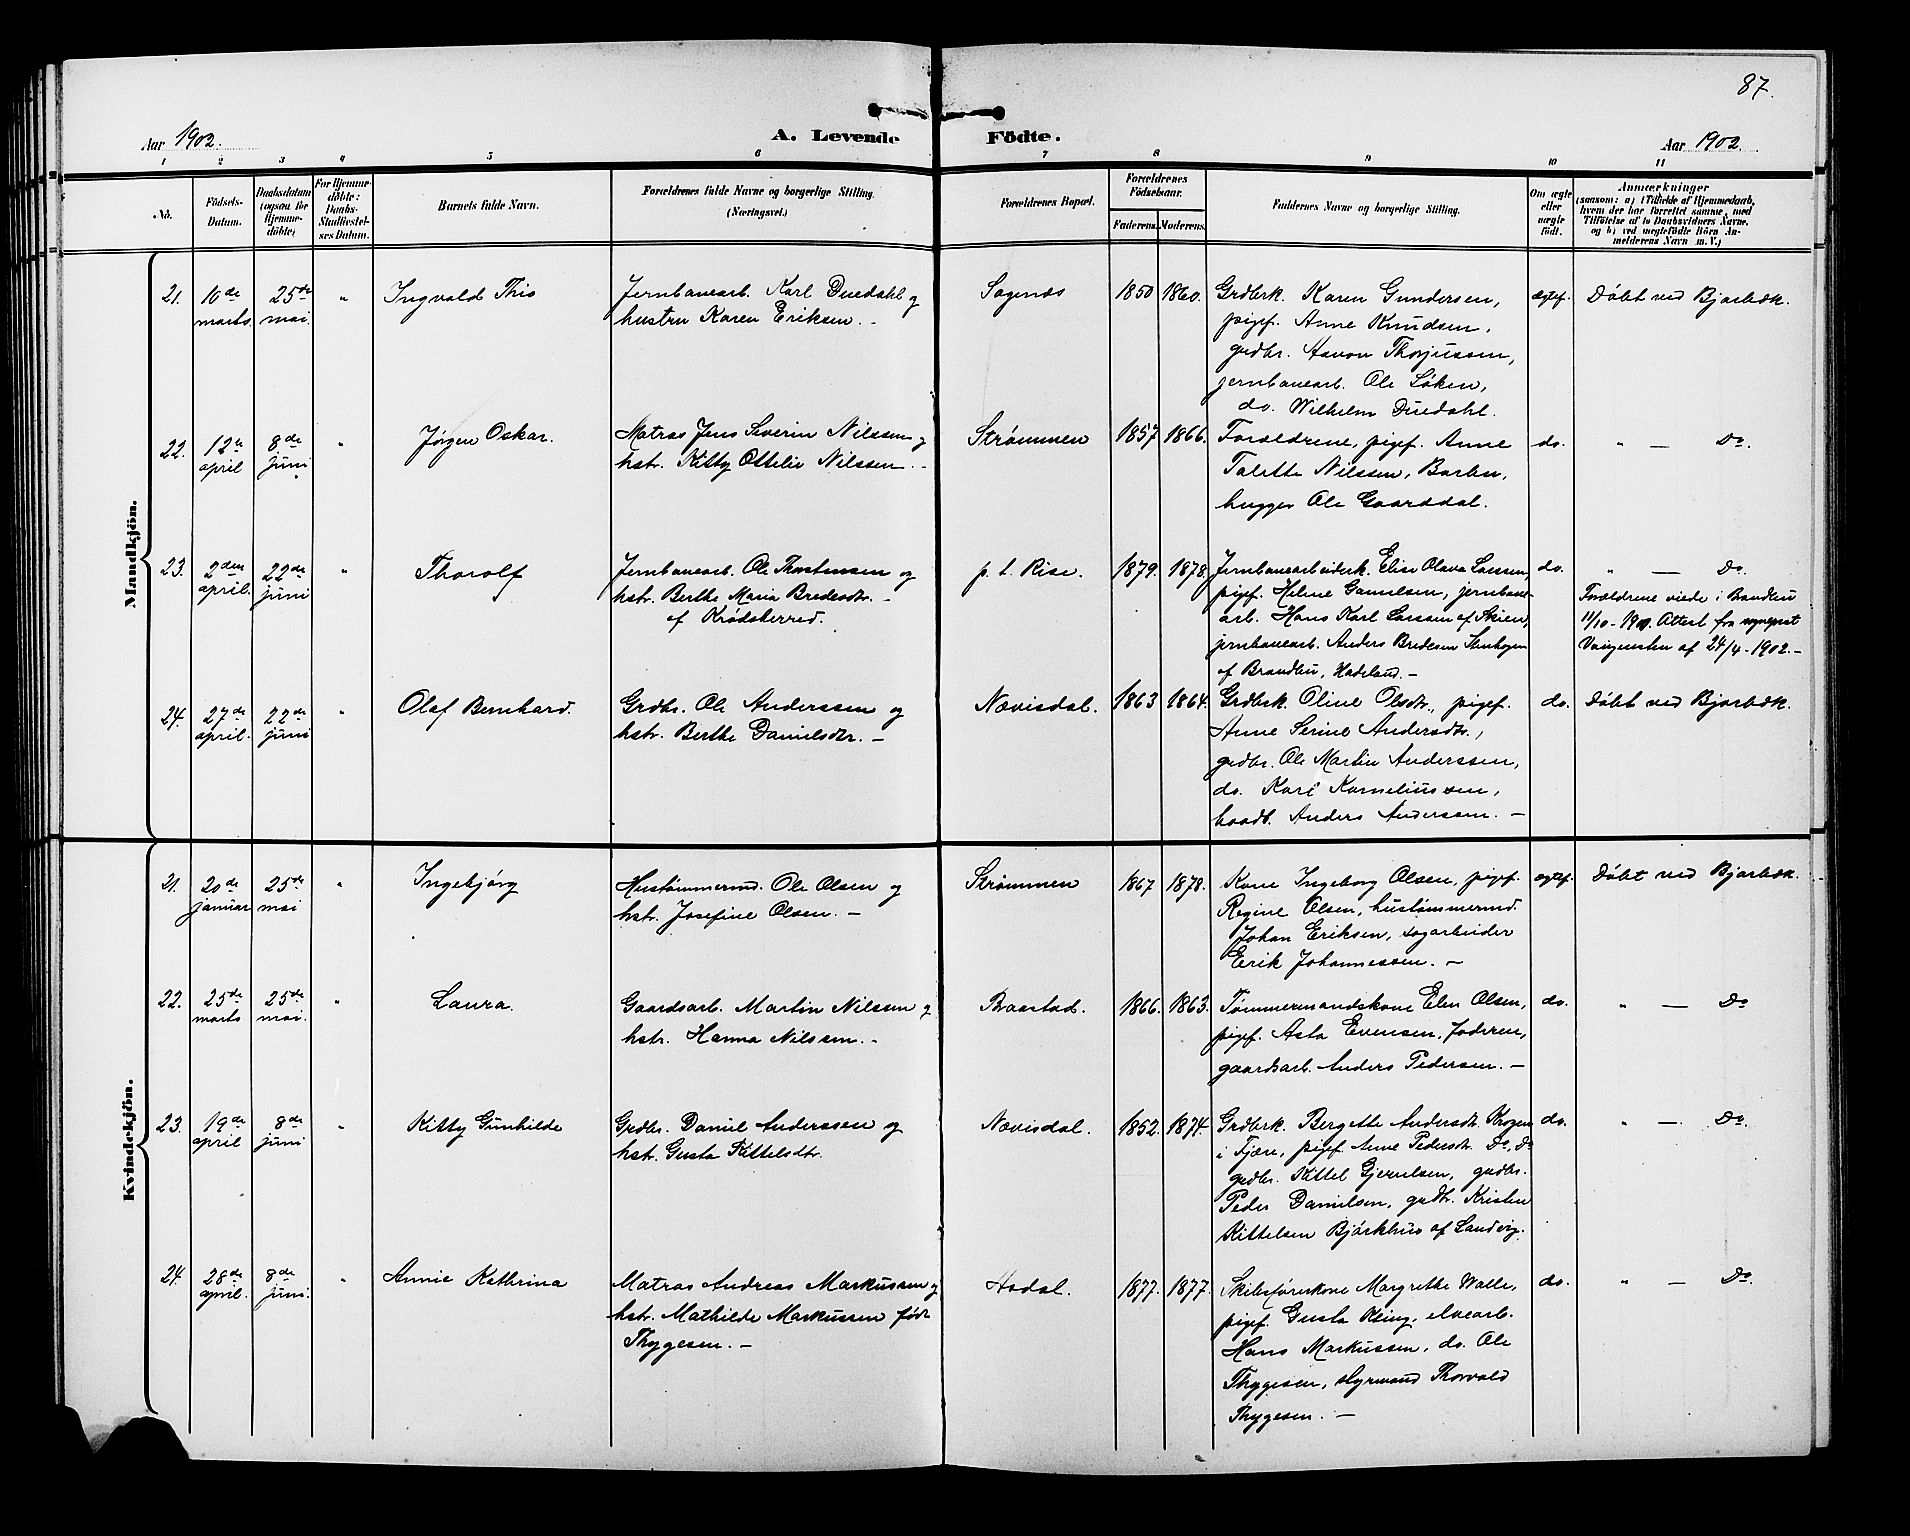 87.
Aar 1902. A. Levende Födte. Aar 1902.
1 2 3 4 5 6 7 8 9 10 11
No.
Födsels-Datum.
Daabsdatum (ogsaa for Hjemmedöbte)
For Hjemmedöbte: Daabs-Stadfæstelses Datum.
Barnets fulde Navn.
Forældrenes fulde Navne og borgerlige Stilling.
(Næringsvei.)
Forældrenes Bopæl.
Forældrenes Födselsaar.
Faderens. Moderens.
Faddernes Navne og borgerlige Stilling.
Om ægte eller uægte født.
Anmærkninger
(saasom: a) i Tilfælde af Hjemmedaab,
hvem der har forrettet samme, med
Tilföielse af to Daabsvidners Navne,
og b) ved uægtefödte Börn Anmelderens Navn m. V.)
Mandkjön.
21. 10de marts. 25de mai. " Ingvald Thio
Jernbanearb. Karl Duedahl og
hustru Karen Eriksen. -
Sagenæs 1850 1860.
Grdbrk. Karen Gundersen,
pigef. Anne Knudsen,
grdbr. Aavon Thorjussen,
jernbanearb. Ole Løken,
do. Wilhelm Duedahl.
ægtef. Døbt ved Bjorbæk.
22. 12te april 8de juni " Jørgen Oskar.
Matros Jens Severin Nilssen og
hstr. Kitty Ottelie Nilssen. -
Strømmen 1857 1866.
Forældrene, pigef. Anne
Talette Nilssen, Barbu,
hugger Ole Gaarddal.
do. " — Do.
23. 2den april. 22de juni " Thorolf
Jernbanearb. Ole Thorstensen og
hstr. Berthe Maria Bredesdtr. -
af Krødsherred.
p. t. Rise. 1879. 1878.
Jernbanearbeiderk. Elise Olava Larssen,
pigef. Helene Gamelsen, jernbane-
arb. Hans Karl Larssen af Skien,
jernbanearb. Anders Bredesen Stenhagen
af Brandbu, Hadeland. -
do. " — Do.
Forældrene viede i Brandbu
11/10-1901. Attest fra sognepræst
af 24/4-1902. -
24. 27de april. 22de juni " Olaf Bernhard.
Grdbr. Ole Anderssen og
hstr. Berthe Danielsdtr. -
Nævisdal. 1863 1864.
Grdbrk. Oline Olsdtr., pigef.
Anne Serine Andersdtr.,
grdbr. Ole Martin Anderssen,
do. Karl Korneliussen,
baadb. Anders Anderssen. -
do. Døbt ved Bjorbæk.
Kvindekjön.
21. 20de januar 25de mai " Ingebjørg
Hustømmermd. Ole Olsen og
hstr. Josefine Olsen. -
Strømmen 1867 1878.
Kone Ingeborg Olsen, pigef.
Regine Olsen, hustømmermd.
Johan Eriksen, sagarbeider
Erik Johannessen. -
ægtef. Døbt ved Bjorbæk.
22. 25de marts 25de mai. " Laura.
Gaardsarb. Martin Nilssen og
hstr. Hanna Nilssen. -
Baastad. 1866. 1863.
Tømmermandskone Elen Olsen,
pigef. Asta Evensen, Faderen,
gaardsarb. Anders Pedersen. -
do. " — Do
23. 19de april 8de juni " Kitty Gunhilde
Grdbr. Daniel Anderssen og
hstr. Gusta Kittelsdtr.
Nævisdal. 1852. 1874.
Grdbrk. Bergette Andersdt. Skogen
i Fjære, pigef. Anne Pedersdt. Do, Do
grdbr. Kittel Gjerulsen, grdbr.
Peder Danielsen, grdb. Kristen
Kittelsen Bjørkhus af Landvig.
do. " — Do.
24. 28de april. 8de juni. " Annie Kathrina
Matros Andreas Markussen og
hstr. Mathilde Markussen født
Thygesen. -
Aadal. 1877. 1877.
Skibsførerkone Margrethe Walle,
pigef. Gusta Kling, elvearb.
Hans Markussen, do. Ole
Thygesen, styrmand Thorvald
Thygesen. -
do. " — Do.